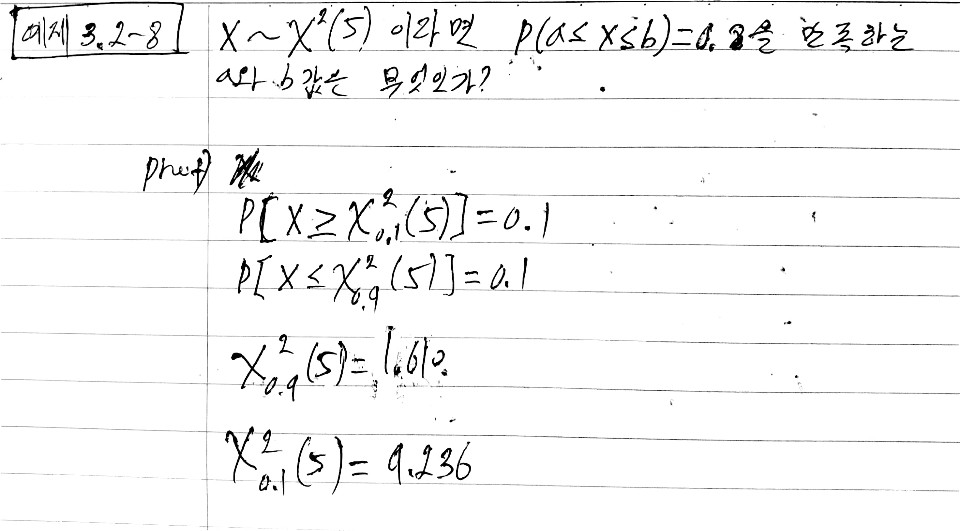 예제 3.2-8 X ~ X²(5) 이라면 P(a ≤ X ≤ b) = 0.8을 만족하는
a와 b 값은 무엇인가?
proof)
P[X ≥ X²₀.₁(5)] = 0.1
P[X ≤ X²₀.₉(5)] = 0.1
X²₀.₉(5) = 1.610.
X²₀.₁(5) = 9.236